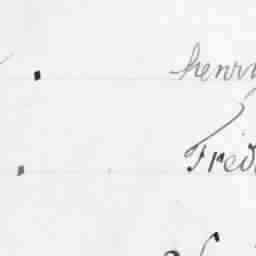 henry
Fred